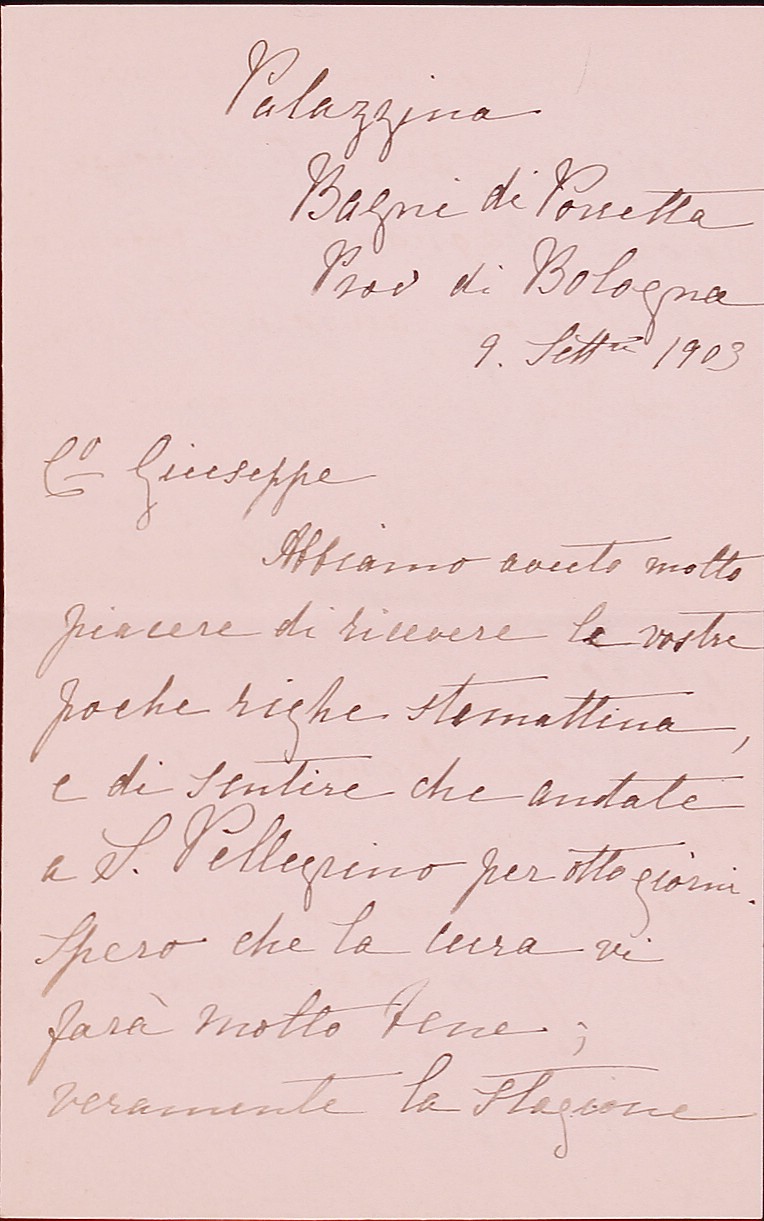 Palazzina
Bagni di Porretta
Prov di Bologna
9. Sett.re 1903
Co Giuseppe
Abbiamo avuto molto
piacere di ricevere le vostre
poche righe stamattina,
e di sentire che andate
a S. Pellegrino per otto giorni.
Spero che la cura vi
farà molto bene;
veramente la stagione